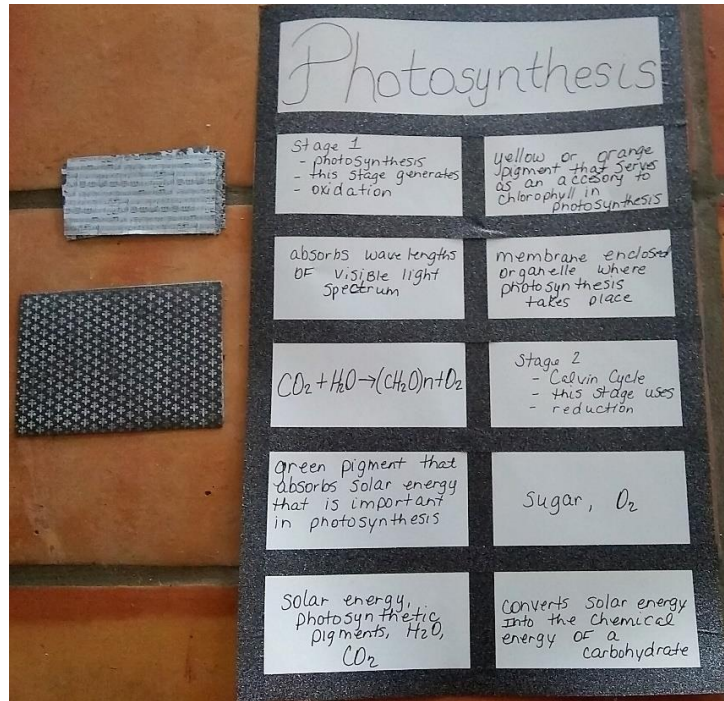 Photosynthesis
Stage 1
- photosynthesis
- this stage generates
- oxidation
yellow or orange
pigment that serves
as an accesory to
chlorophyll in
photosynthesis
absorbs wave lengths
OF visible light
spectrum
membrane enclosed
organelle where
photosynthesis
takes place
CO₂ + H₂O → (CH₂O)n + O₂
Stage 2
- Calvin Cycle
- this stage uses
- reduction
green pigment that
absorbs solar energy
that is important
in photosynthesis
Sugar, O₂
Solar energy,
photosynthetic
pigments, H₂O,
CO₂
converts solar energy
Into the chemical
energy OF a
carbohydrate